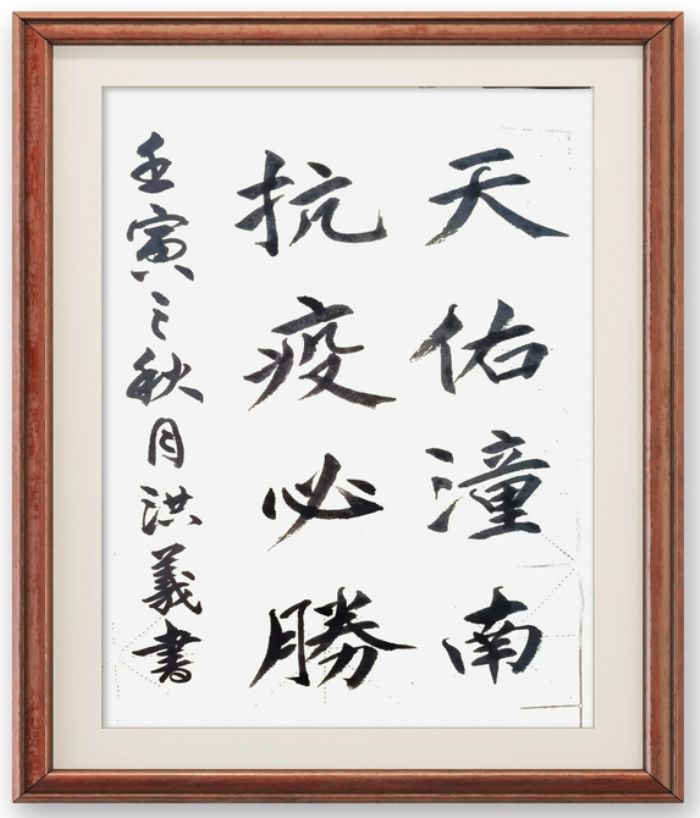 天佑潼南
抗疫必勝
壬寅之秋月洪義書